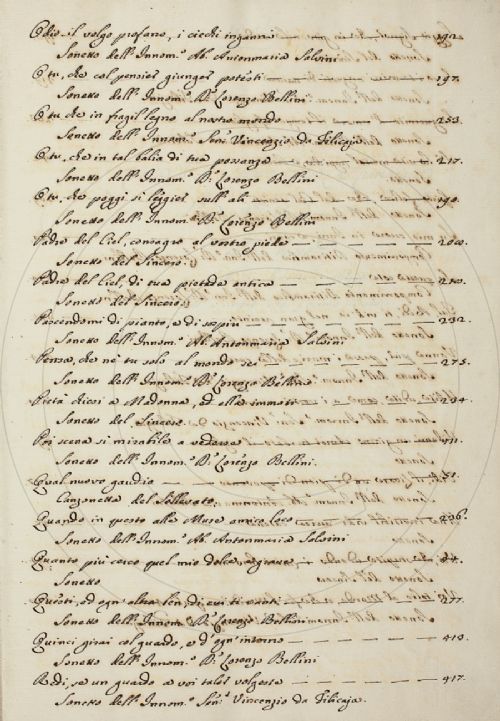 Odio il volgo profano, i ciechi inganni — 192.
Sonetto dell' Innom.º Ab. Antonmaria Salvini
O tu, che col pensier giunger potesti — 197.
Sonetto dell' Innom.º D.r Lorenzo Bellini
O tu che in fragil legno al nostro mondo — 253.
Sonetto dell' Innom.º Sen.r Vincenzio da Filicaja
O tu, che in tal balia di tua possanza — 217.
Sonetto dell' Innom.º D.r Lorenzo Bellini
O tu, che poggi si leggier sull' ali — 190.
Sonetto dell' Innom.º D.r Lorenzo Bellini
Padre del Ciel, consagro al vostro piede — 200.
Sonetto del Sincero.
Padre del Ciel, di tua pietade antica — 210.
Sonetto del Sincero.
Pascendomi di pianto, e di sospiri — 232.
Sonetto dell' Innom.º Ab. Antonmaria Salvini
Pensa, che ne tu solo al mondo sei — 275.
Sonetto dell' Innom.º D.r Lorenzo Bellini
Pietà dicei a Madonna, ed ella immoti — 234
Sonetto del Sincero.
Poi scena si mirabile a vedersi — 411.
Sonetto dell' Innom.º D.r Lorenzo Bellini.
Qual nuovo gaudio
Canzonetta del Sollevato
Quando in questo alle Muse amico loco — 296.
Sonetto dell' Innom.º Ab. Antonmaria Salvini
Quanto più cerco quel mio dolce, e grave — 44.
Sonetto
Questi, ed ogn' altra — 277.
Sonetto dell' Innom.º D.r Lorenzo Bellini
Quinci girai col guardo, e d' ogn' intorno — 413.
Sonetto dell' Innom.º D.r Lorenzo Bellini
Redi, se un guardo a voi talor volgeste — 417.
Sonetto dell' Innom.º Sen.r Vincenzio da Filicaja.